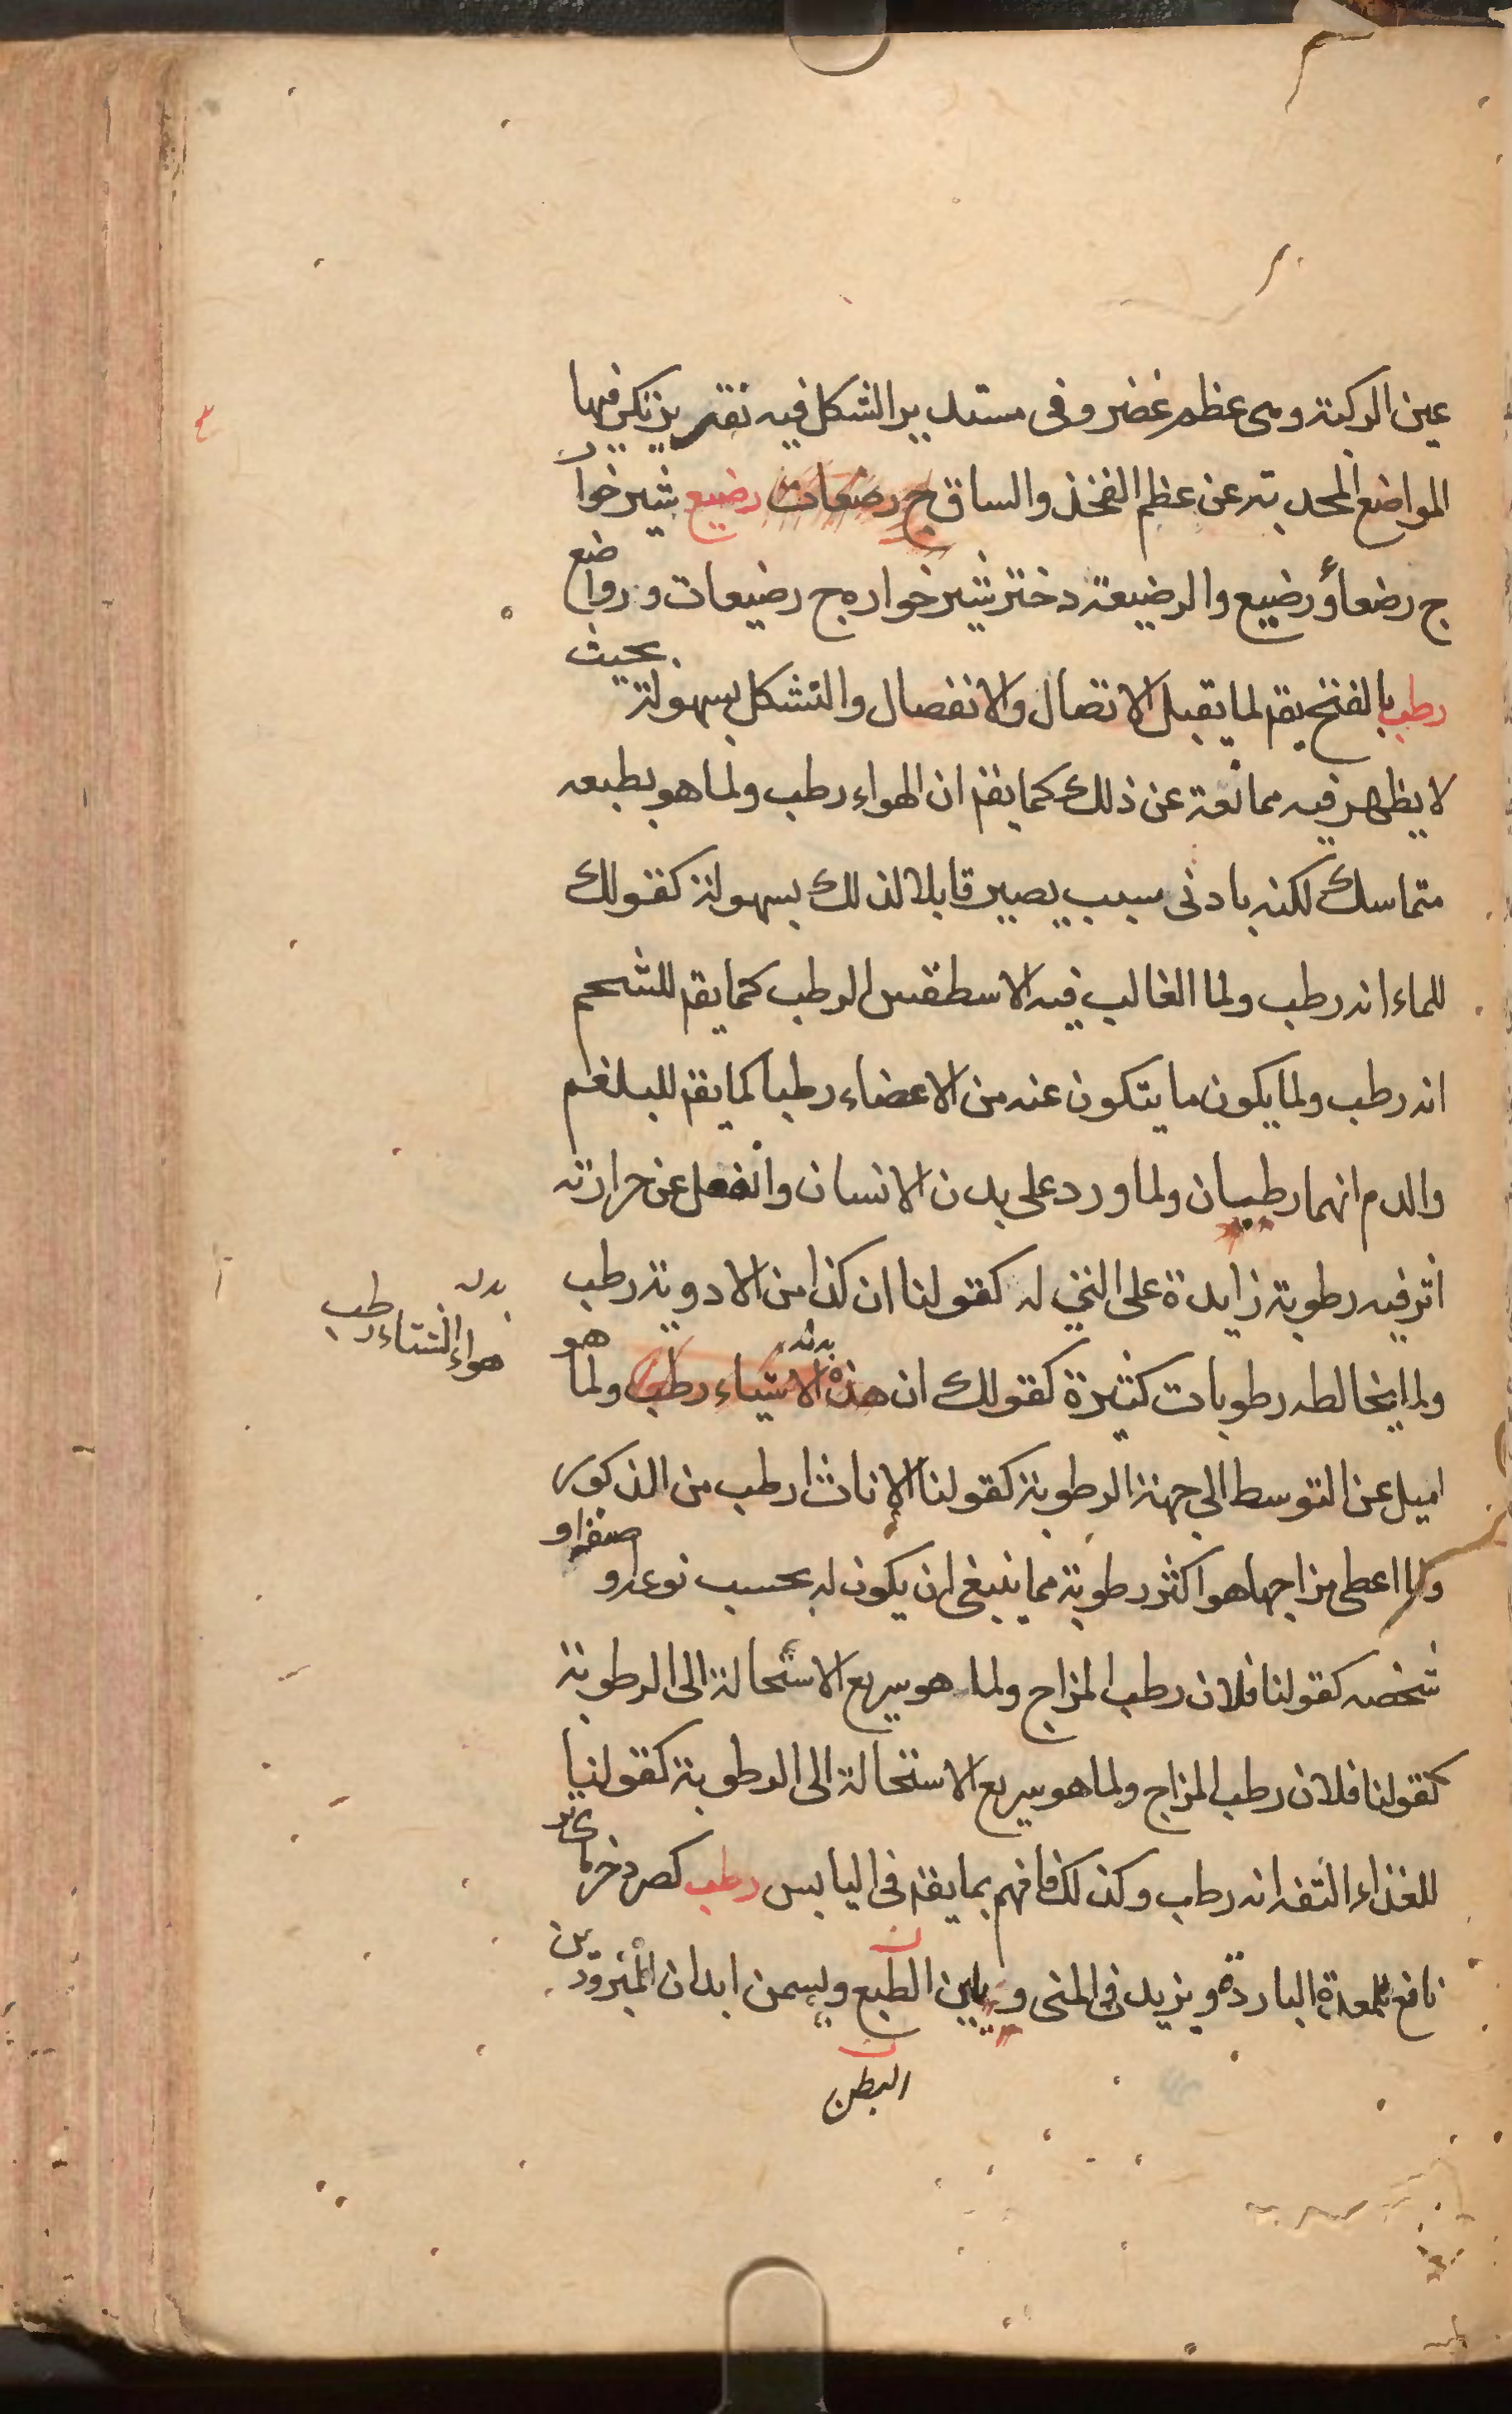 عين الركبة وهى عظم غضروفى مستدير الشكل فيه نقر يرتكز فيها
المواضع المحدبة عن عظم الفخذ والساق ج رضعات رضيع شيرخوار
ج رضعاً و رضيع والرضيعة دختر شيرخواره ج رضيعات ورواضع
رطب بالفتح يقم لما يقبل الاتصال والانفصال والتشكل بسهولة بحيث
لا يظهر فيه ممانعة عن ذلك كما يقم ان الهواء رطب ولما هو بطبعه
متماسك لكنه بادنى سبب يصير قابلا لذلك بسهولة كقولك
للماء انه رطب ولما الغالب فيه الاسطقس الرطب كما يقم للشحم
انه رطب ولما يكون ما يتكون عنه من الاعضاء رطبا كما يقم للبلغم
والدم انهما رطبان ولما ورد على بدن الانسان وانفعل عن حرارته
اثر فيه رطوبة زايدة على التى له كقولنا ان كذا من الادوية رطب
ولما يخالطه رطوبات كثيرة كقولك ان هذه الاشياء رطب ولما هو
بدله
هواء الشتاء رطب
اميل عن التوسط الى جهة الرطوبة كقولنا الاناث ارطب من الذكور
ولما اعطى مزاجها هو اكثر رطوبة مما ينبغى ان يكون له بحسب نوعه او صنفه او
شخصه كقولنا فلان رطب المزاج ولما هو سريع الاستحالة الى الرطوبة
كقولنا فلان رطب المزاج ولما هو سريع الاستحالة الى الرطوبة كقولنا
للغذاء التفه انه رطب وكذلك فافهم بما يقم فى اليابس رطب كصرد خرماى تر
نافع للمعدة الباردة ويزيد فى المنى ويلين الطبع ويسمن ابدان المبرودين
البطن